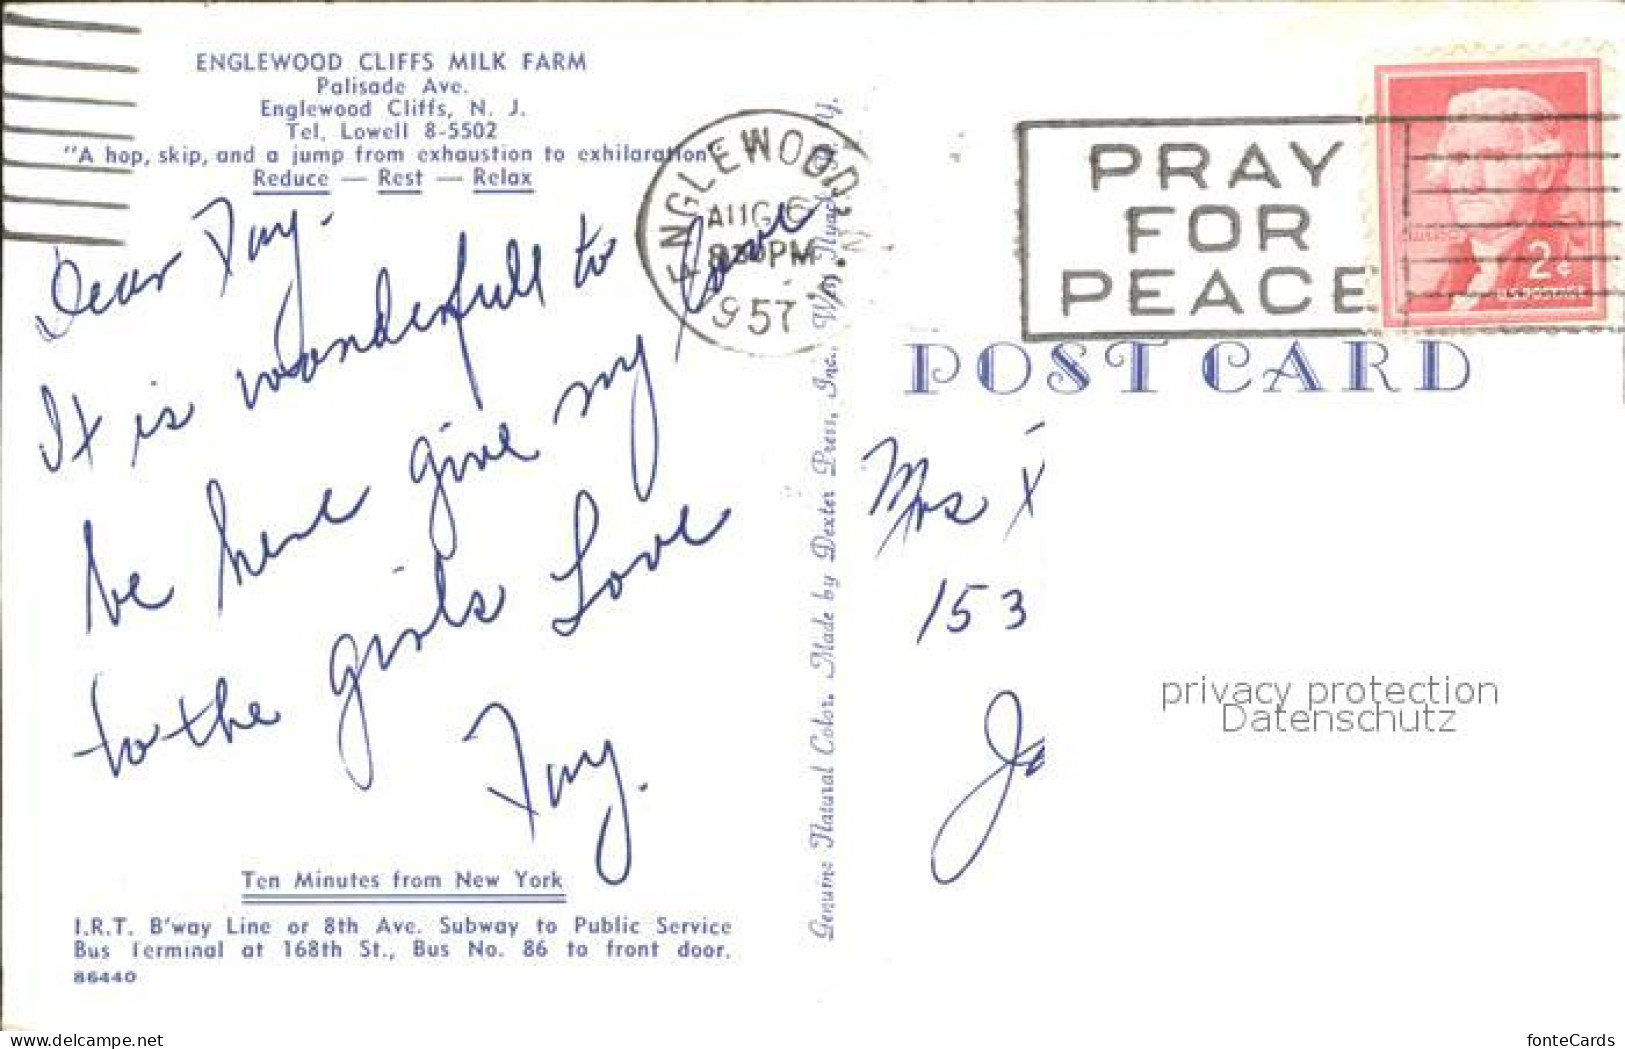 ENGLEWOOD CLIFFS MILK FARM
Palisade Ave.
Englewood Cliffs, N. J.
Tel. Lowell 8-5502
"A hop, skip, and a jump from exhaustion to exhilaration"
Reduce — Rest — Relax
Dear Fay.
It is wonderfull to
be here give my love
to the girls Love
Fay.
Ten Minutes from New York
I.R.T. B'way Line or 8th Ave. Subway to Public Service
Bus Terminal at 168th St., Bus No. 86 to front door.
86440
Genuine Natural Color. Made by Dexter Press, Inc., W. Nyack, N. Y.
ENGLEWOOD
AUG 6
PM
957
PRAY
FOR
PEACE
2¢
U.S. POSTAGE
POST CARD
Mrs
153
privacy protection
Datenschutz
www.delcampe.net
fonteCards